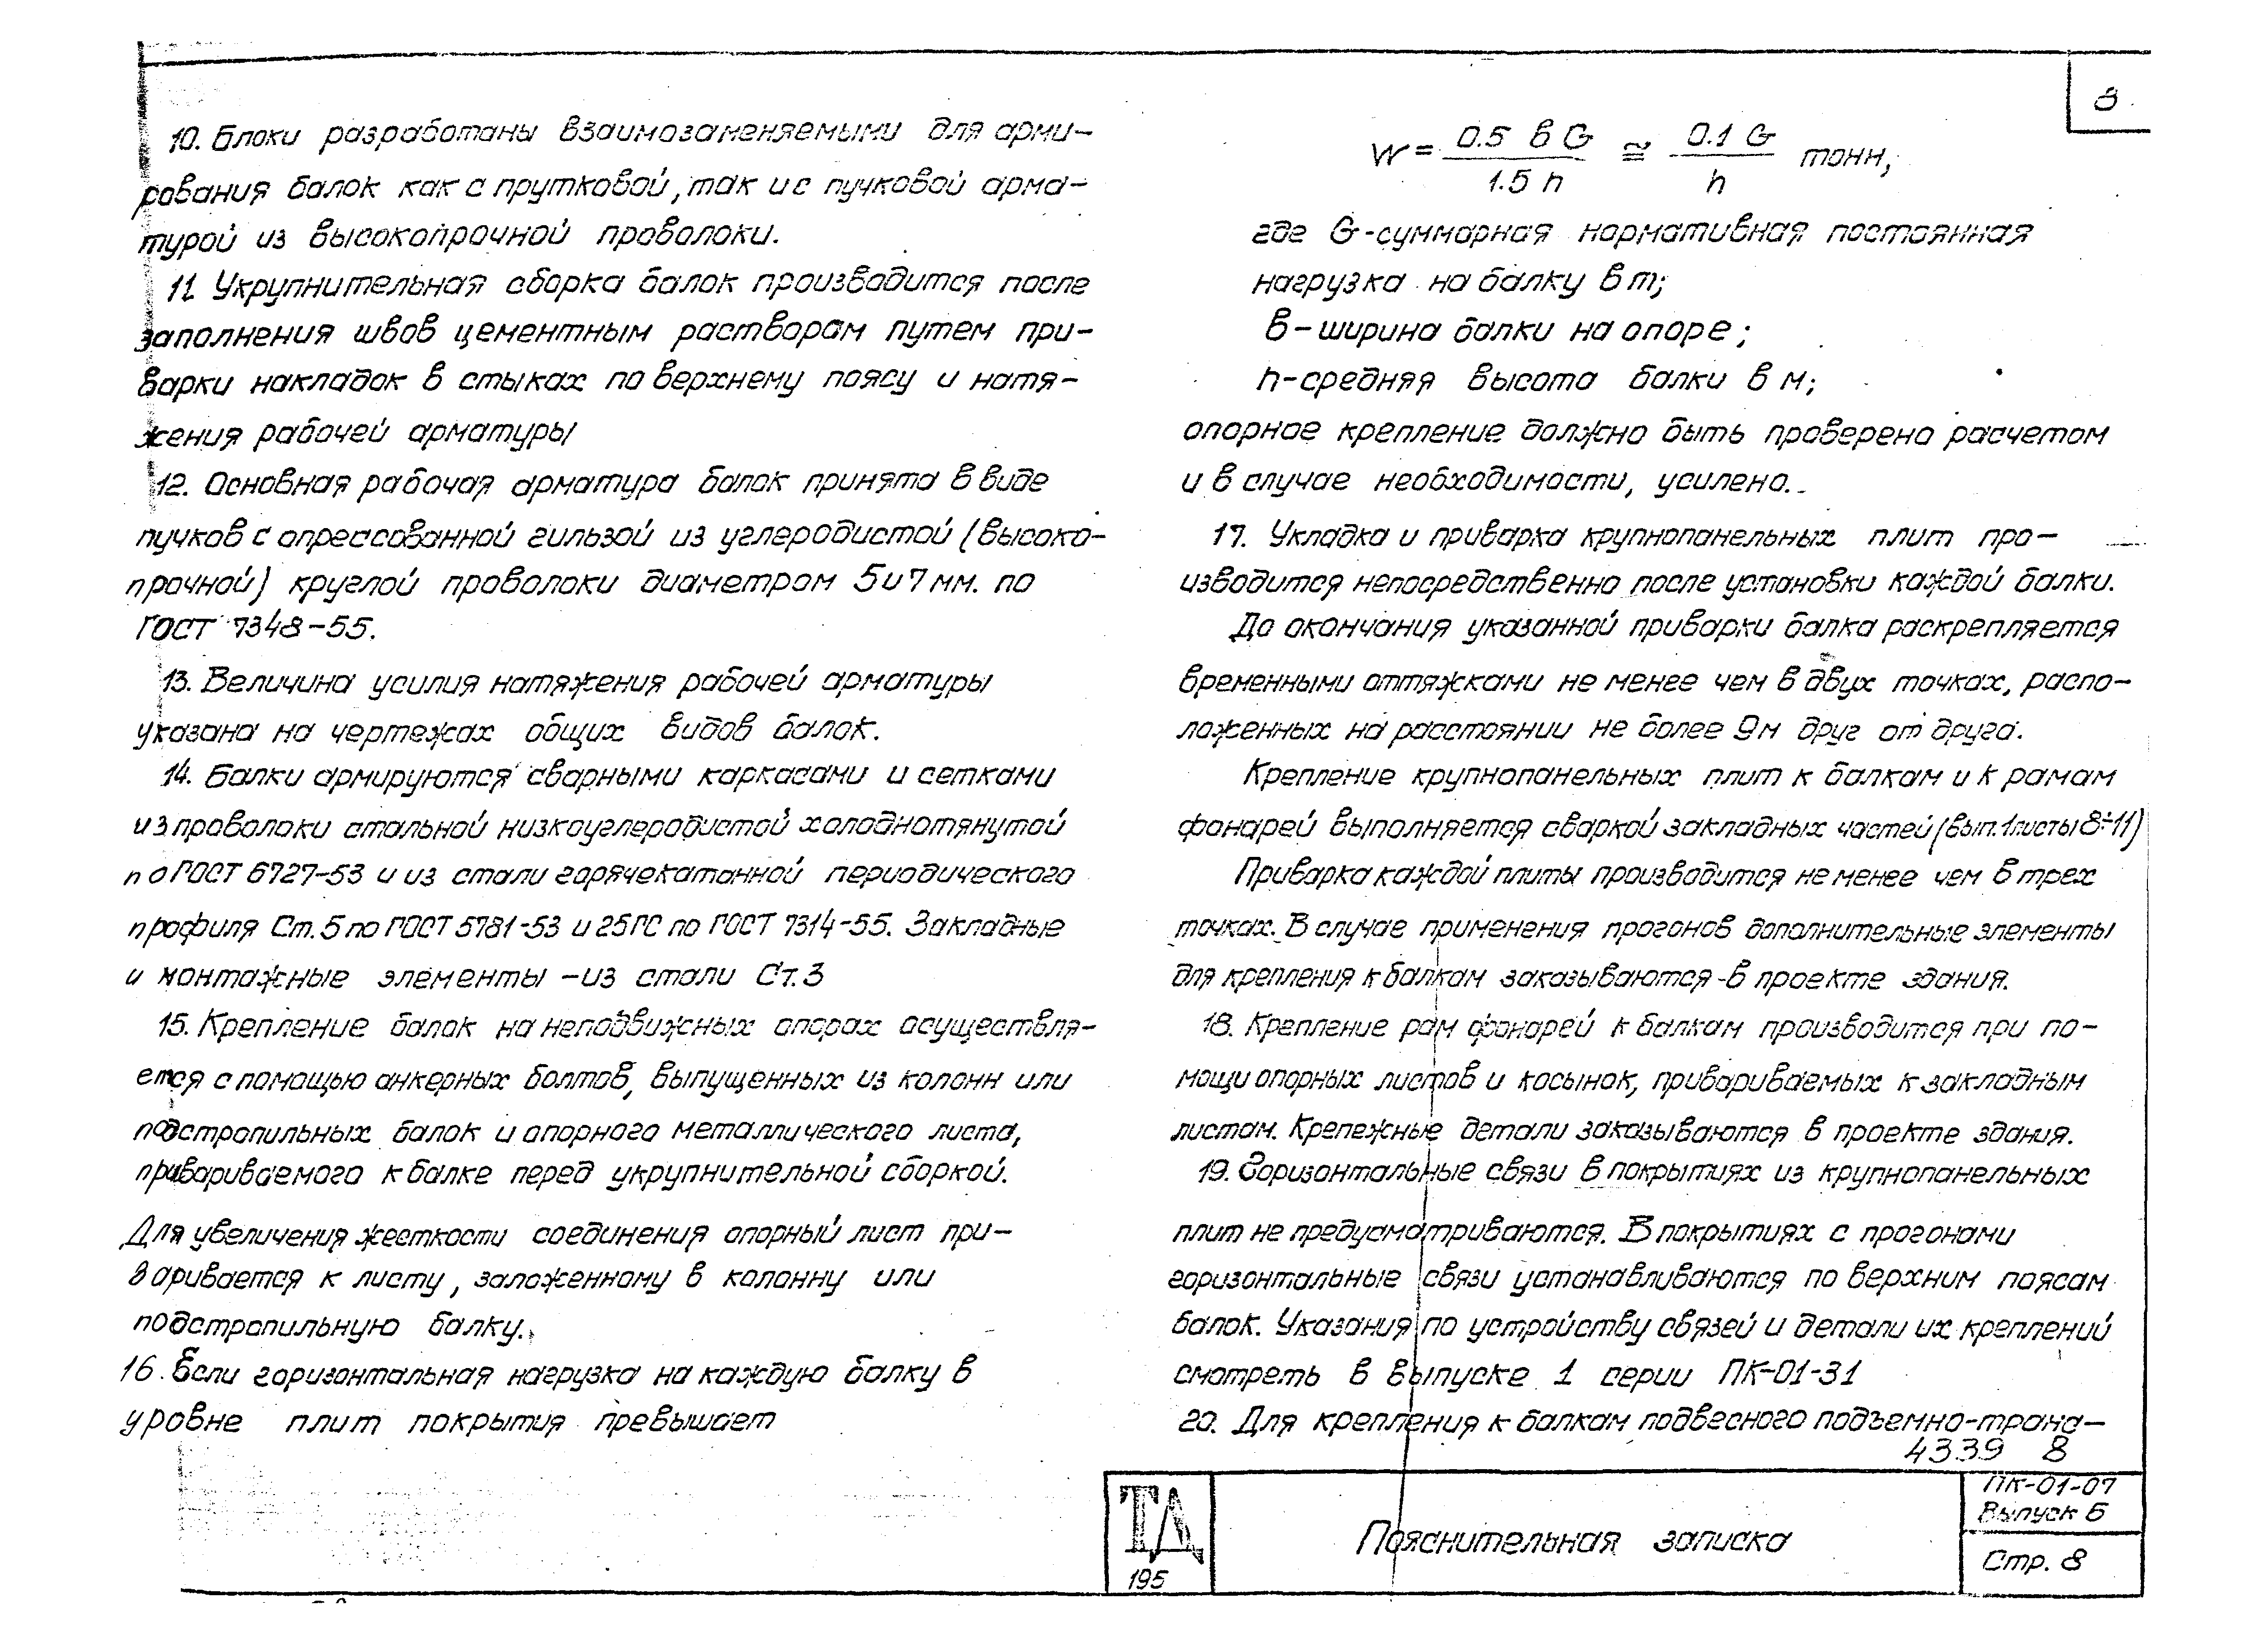 10. Блоки разработаны взаимозаменяемыми для арми-
рования балок как с прутковой, так и с пучковой арма-
турой из высокопрочной проволоки.
11. Укрупнительная сборка балок производится после
заполнения швов цементным раствором путем при-
варки накладок в стыках по верхнему поясу и натя-
жения рабочей арматуры
12. Основная рабочая арматура балок принята в виде
пучков с опрессованной гильзой из углеродистой (высоко-
прочной) круглой проволоки диаметром 5 и 7 мм. по
ГОСТ 7348-55.
13. Величина усилия натяжения рабочей арматуры
указана на чертежах общих видов балок.
14. Балки армируются сварными каркасами и сетками
из проволоки стальной низкоуглеродистой холоднотянутой
по ГОСТ 6727-53 и из стали горячекатанной периодического
профиля Ст. 5 по ГОСТ 5781-53 и 25ГС по ГОСТ 7314-55. Закладные
и монтажные элементы - из стали Ст. 3
15. Крепление балок на неподвижных опорах осуществля-
ется с помощью анкерных болтов, выпущенных из колонн или
подстропильных балок и опорного металлического листа,
привариваемого к балке перед укрупнительной сборкой.
Для увеличения жесткости соединения опорный лист при-
варивается к листу, заложенному в колонну или
подстропильную балку.
16. Если горизонтальная нагрузка на каждую балку в
уровне плит покрытия превышает
8
W = 0.5 в G / 1.5 h ≅ 0.1 G / h тонн,
где G - суммарная нормативная постоянная
нагрузка на балку в т;
в - ширина балки на опоре;
h - средняя высота балки в м;
опорное крепление должно быть проверено расчетом
и в случае необходимости, усилено.
17. Укладка и приварка крупнопанельных плит про-
изводится непосредственно после установки каждой балки.
До окончания указанной приварки балка раскрепляется
временными оттяжками не менее чем в двух точках, распо-
ложенных на расстоянии не более 9м друг от друга.
Крепление крупнопанельных плит к балкам и к рамам
фонарей выполняется сваркой закладных частей (вып. 1 листы 8÷11)
Приварка каждой плиты производится не менее чем в трех
точках. В случае применения прогонов дополнительные элементы
для крепления к балкам заказываются - в проекте здания.
18. Крепление рам фонарей к балкам производится при по-
мощи опорных листов и косынок, привариваемых к закладным
листам. Крепежные детали заказываются в проекте здания.
19. Горизонтальные связи в покрытиях из крупнопанельных
плит не предусматриваются. В покрытиях с прогонами
горизонтальные связи устанавливаются по верхним поясам
балок. Указания по устройству связей и детали их креплений
смотреть в выпуске 1 серии ПК-01-31
20. Для крепления к балкам подвесного подъемно-транс-
4339 8
ТД
195
Пояснительная записка
ПК-01-07
Выпуск 6
Стр. 8